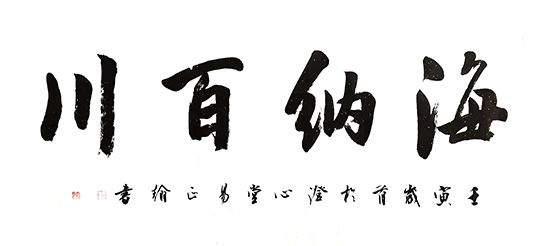 海納百川
壬寅歲首於澄心堂易正綸書